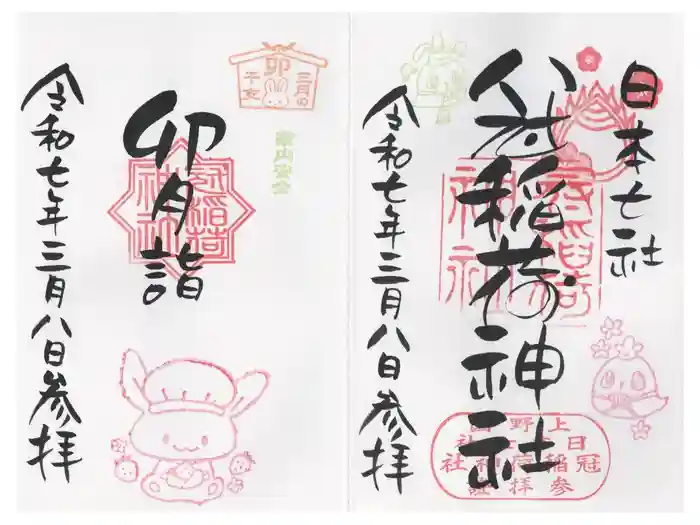 日本七社
冠稲荷神社
令和七年三月八日参拝
上野国
冠稲荷神社
参拝証
卯
三月の
干支
卯月詣
冠稲荷
神社
令和七年三月八日参拝